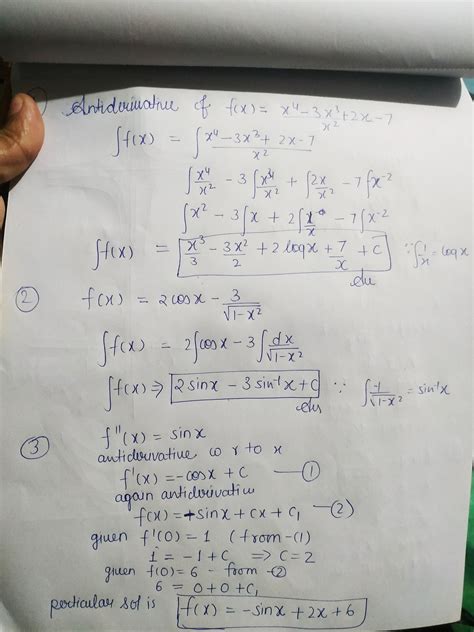 1 Antiderivative of f(x) = x⁴ - 3x³ + 2x - 7 / x²
∫f(x) = ∫ x⁴ - 3x³ + 2x - 7 / x²
∫x⁴/x² - 3∫x³/x² + ∫2x/x² - 7∫x⁻²
∫x² - 3∫x + 2∫1/x - 7∫x⁻²
∫f(x) = x³/3 - 3x²/2 + 2 log x + 7/x + C ∵ ∫1/x = log x
Ans
2 f(x) = 2cosx - 3/√1-x²
∫f(x) = 2∫cosx - 3∫dx/√1-x²
∫f(x) ⇒ 2 sinx - 3 sin⁻¹x + C ∵ ∫1/√1-x² = sin⁻¹x
Ans
3 f''(x) = sinx
antiderivative w r to x
f'(x) = -cosx + C — 1
again antiderivative
f(x) = -sinx + Cx + C₁ — 2
given f'(0) = 1 (from -(1)
1 = -1 + C ⇒ C = 2
given f(0) = 6 - from - 2
6 = 0 + 0 + C₁
perticular sol is f(x) = -sinx + 2x + 6